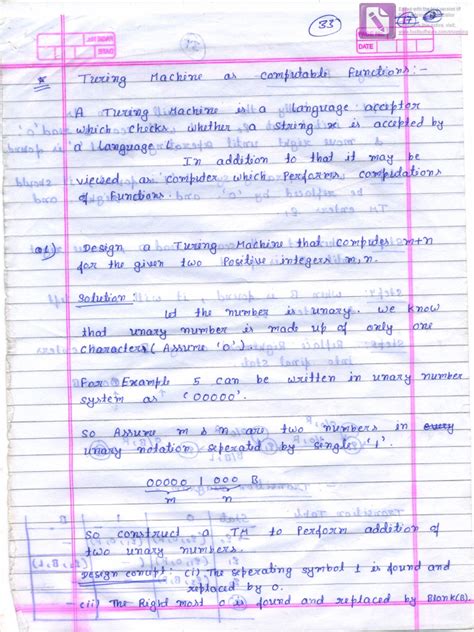 33
17
DATE
* Turing Machine as computable Functions:-
A Turing Machine is a language acceptor
which checks whether a string x is accepted by
a language L
In addition to that it may be
viewed as computer which performs computations
of Functions.
Q1) Design a Turing Machine that computes m+n
for the given two Positive integers m, n.
Solution:
Let the number is unary. We know
that unary number is made up of only one
character (Assume '0').
For Example 5 can be written in unary number
system as '00000'.
So Assume m & n are two numbers in every
unary notation seperated by single '1'.
00000 1 000 B
m n
So construct a TM to Perform addition of
two unary numbers.
Design concept: (i) The seperating symbol 1 is found and
replaced by 0.
- (ii) The Right most 0 is found and replaced by Blank(B).